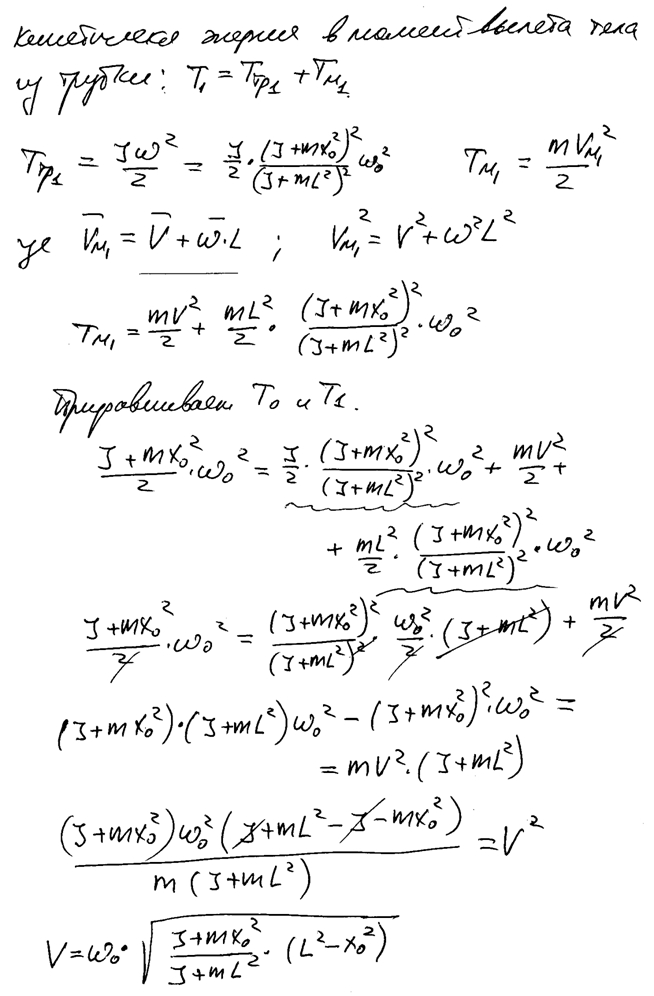 Кинетическая энергия в момент вылета тела
из трубки: T₁ = Tтр₁ + Tм₁.
Tтр₁ = Jω²/2 = J/2 · (J+mx₀²)²/(J+mL²)² ω₀²   Tм₁ = mVм₁²/2
где V̄м₁ = V̄ + ω̄·L ; Vм₁² = V² + ω²L²
Tм₁ = mV²/2 + mL²/2 · (J+mx₀²)²/(J+mL²)² · ω₀²
Приравниваем T₀ и T₁.
(J+mx₀²)/2 · ω₀² = J/2 · (J+mx₀²)²/(J+mL²)² · ω₀² + mV²/2 +
+ mL²/2 · (J+mx₀²)²/(J+mL²)² · ω₀²
(J+mx₀²)/2 · ω₀² = (J+mx₀²)²/(J+mL²)² · ω₀²/2 · (J+mL²) + mV²/2
(J+mx₀²)·(J+mL²)ω₀² − (J+mx₀²)²·ω₀² =
= mV²·(J+mL²)
(J+mx₀²)ω₀²(J+mL²−J−mx₀²)/(m(J+mL²)) = V²
V = ω₀·√((J+mx₀²)/(J+mL²) · (L²−x₀²))